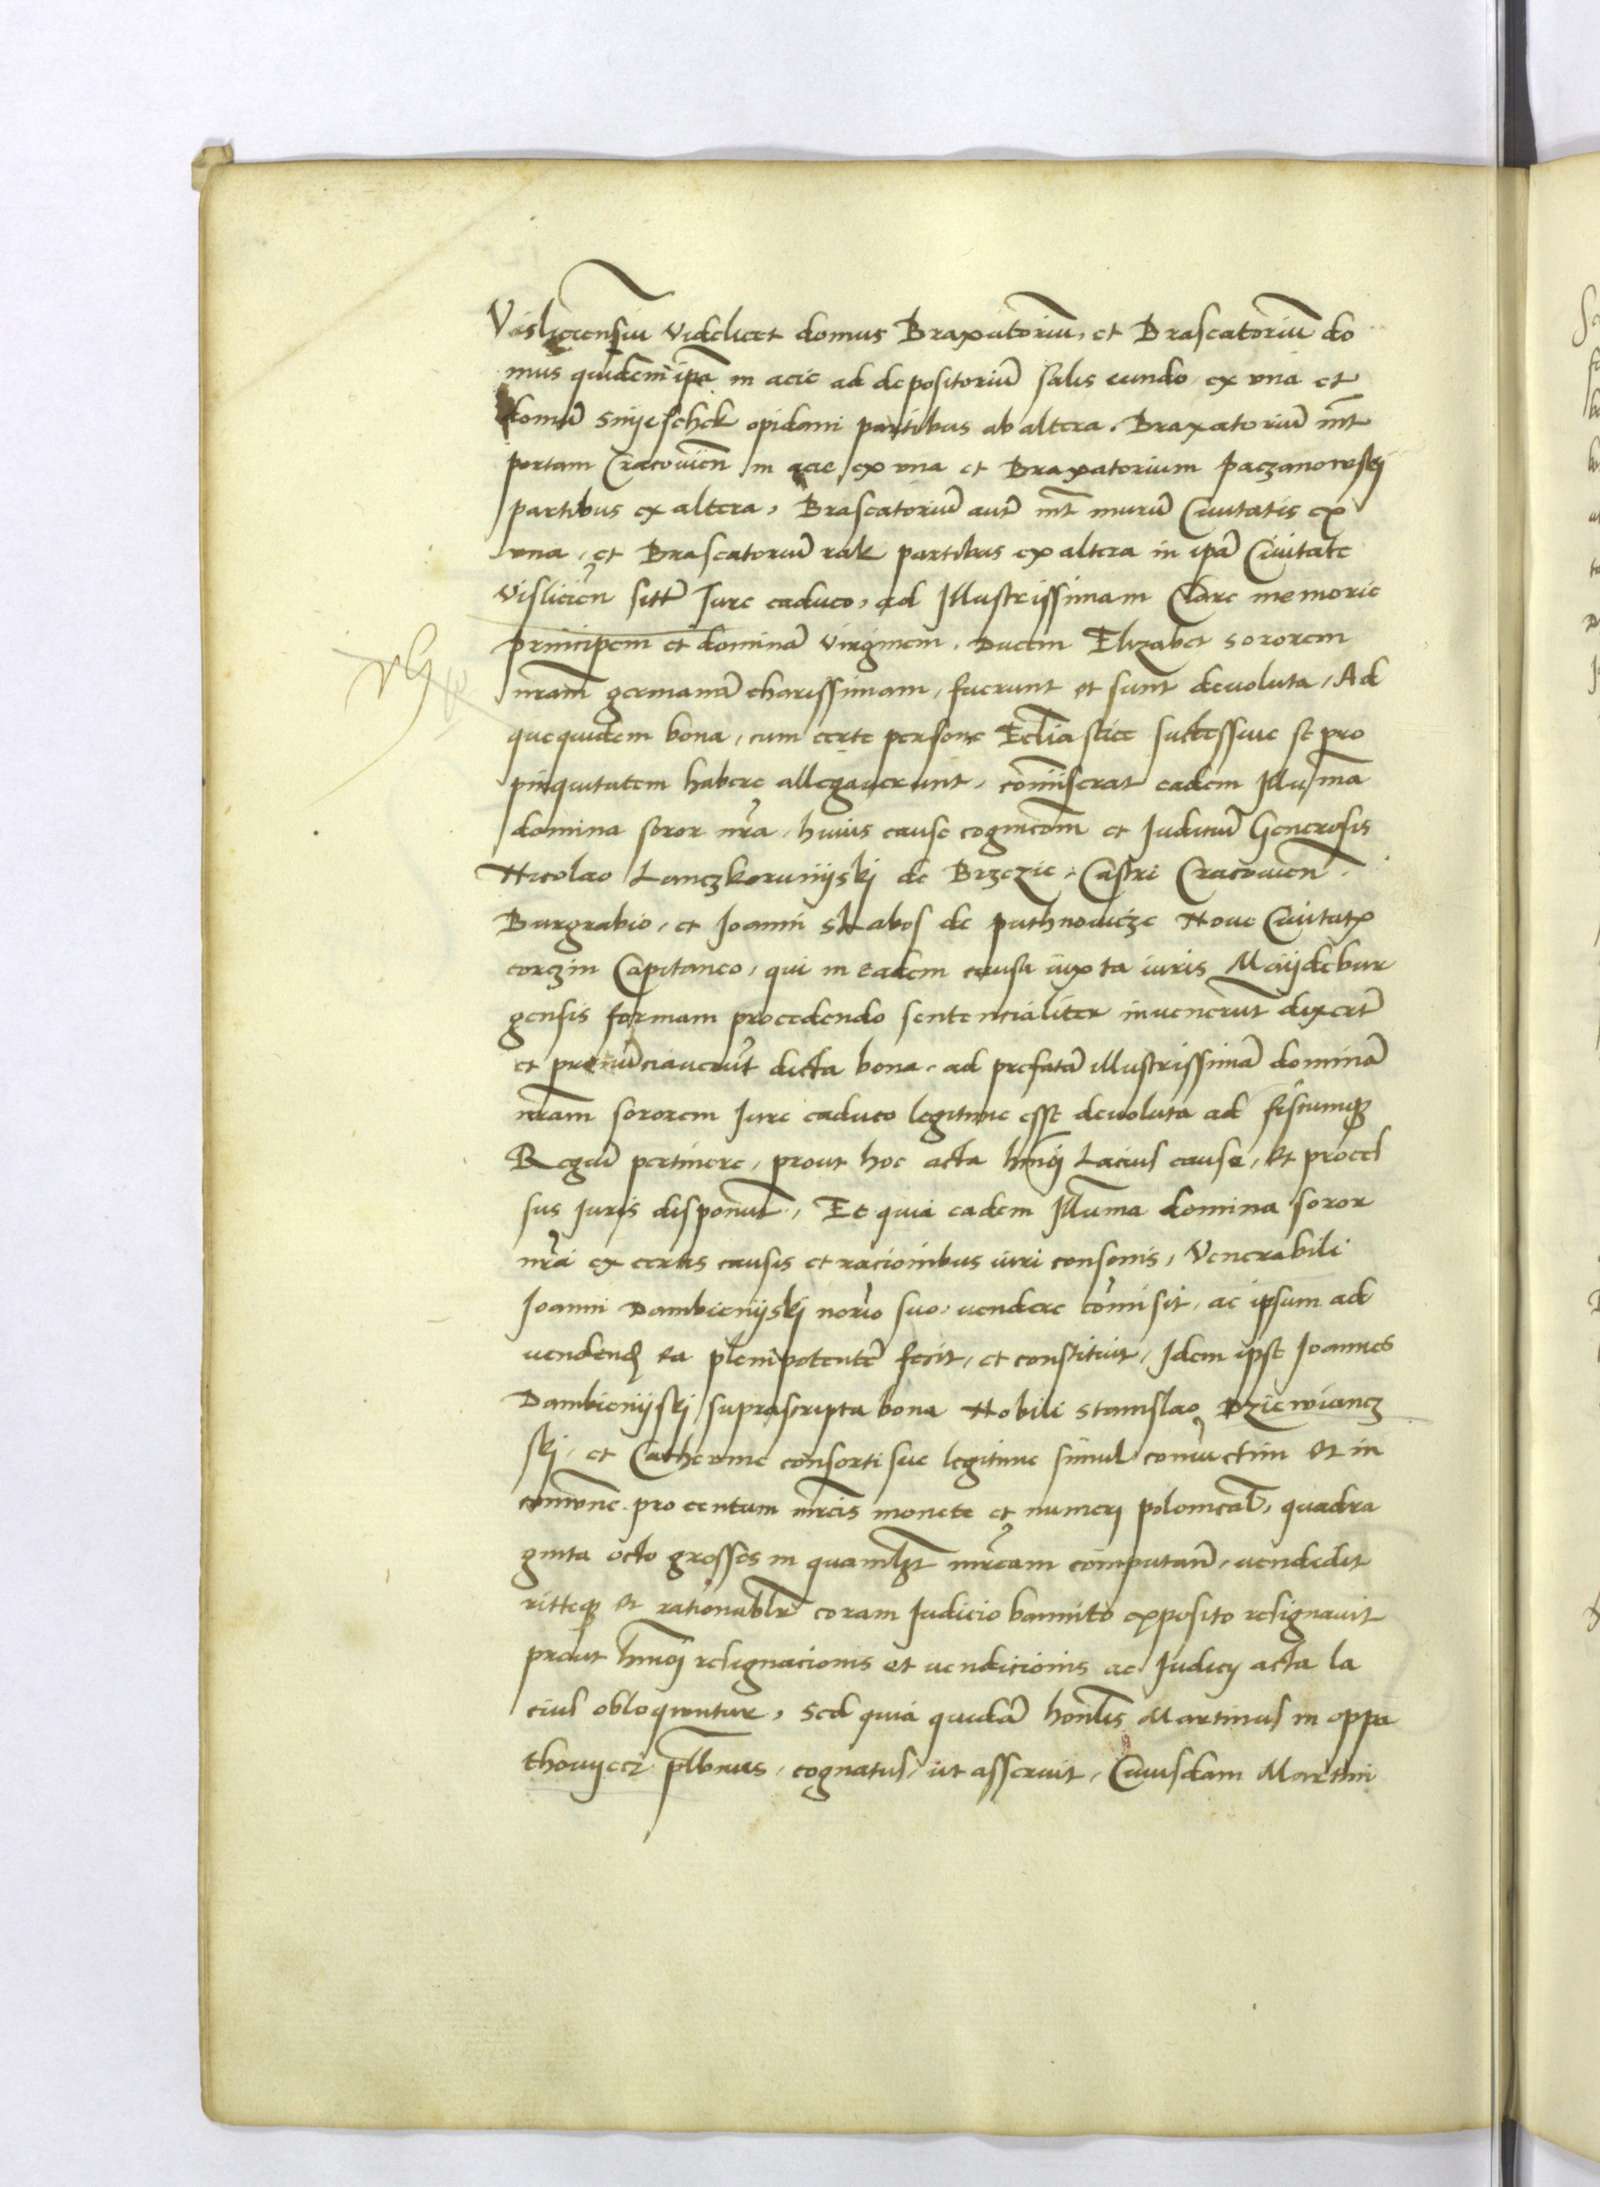 Visliciensiu videlicet domus Braxatoriū, et Brascatoriū do
mus quidem ipa in acie ad depositoriū salis eundo ex vna et
domū Snijeschek opidani partibus ab altera. Braxatoriū int̄
portam Cracovien̄ in acie ex vna et Braxatorium paczanowskj
partibus ex altera, Brascatoriū aut̄ int̄ murū Civitatis ex
vna, et Brascatoriū rak partibus ex altera in ipā Civitate
vislicien̄ sitt̄ Iure caduco, ad Illustrissimam Clare memorie
principem et dominā virginem, Ducem Elizabet sororem
nr̄am germanā charissimam, fuerunt et sunt devoluta, Ad
que quidem bona, cum certe persone Ecclīastice successive se pro
pinquitatem habere allegaverunt, com̄iserat eadem Illus̄ma
domina soror nr̄a, huius cause cognicōm et Iudiciū Generosis
Nicolao Lanczkorunijskj de Brzezie, Castri Cracovien̄.
Burgrabio, et Joanni Slabos de puthnowicze Nove Civitatꝭ
corczin Capitaneo, qui in eadem causa iuxta iuris Maijdebur
gensis formam procedendo sentencialiter invenerūt dixert̄
et pronūciaverūt dicta bona, ad prefatā illustrissimā dominā
nr̄am sororem Iure caduco legitime esse devoluta ad fiscumqꝫ
Regiū pertinere, prout hoc acta hm̄oi Lacius cause, et proces
sus Iuris disponūt, Et quia eadem Illum̄a domina soror
nr̄a ex certis causis et racionibus iuri consonis, Venerabili
Joanni Dambienijskj nor̄io suo, vendere com̄isit, ac ipsum ad
vendend̄ ea plenipotentē fecit, et constituit, Idem ipse Joannes
Dambienijskj suprascripta bona Nobili Stanislao Dziewiancz
skj, et Catherine consorti sue legitime simul coniunctim et in
com̄une pro centum mr̄cis monete et numeri polonical̄, quadra
ginta octo grosses in quamlꝫt mr̄cam computan̄, vendidit
ritteqꝫ et rationablr̄ coram Iudicio bannito exposito resignavit
prout hm̄oi resignacionis et vendicionis ac Iudicij acta la
cius obloquentur, Sed quia quidā hon̄lis Martinus in oppa
thovijecz pl̄bnus, cognatus, ut asseruit, Cuiusdam Martini